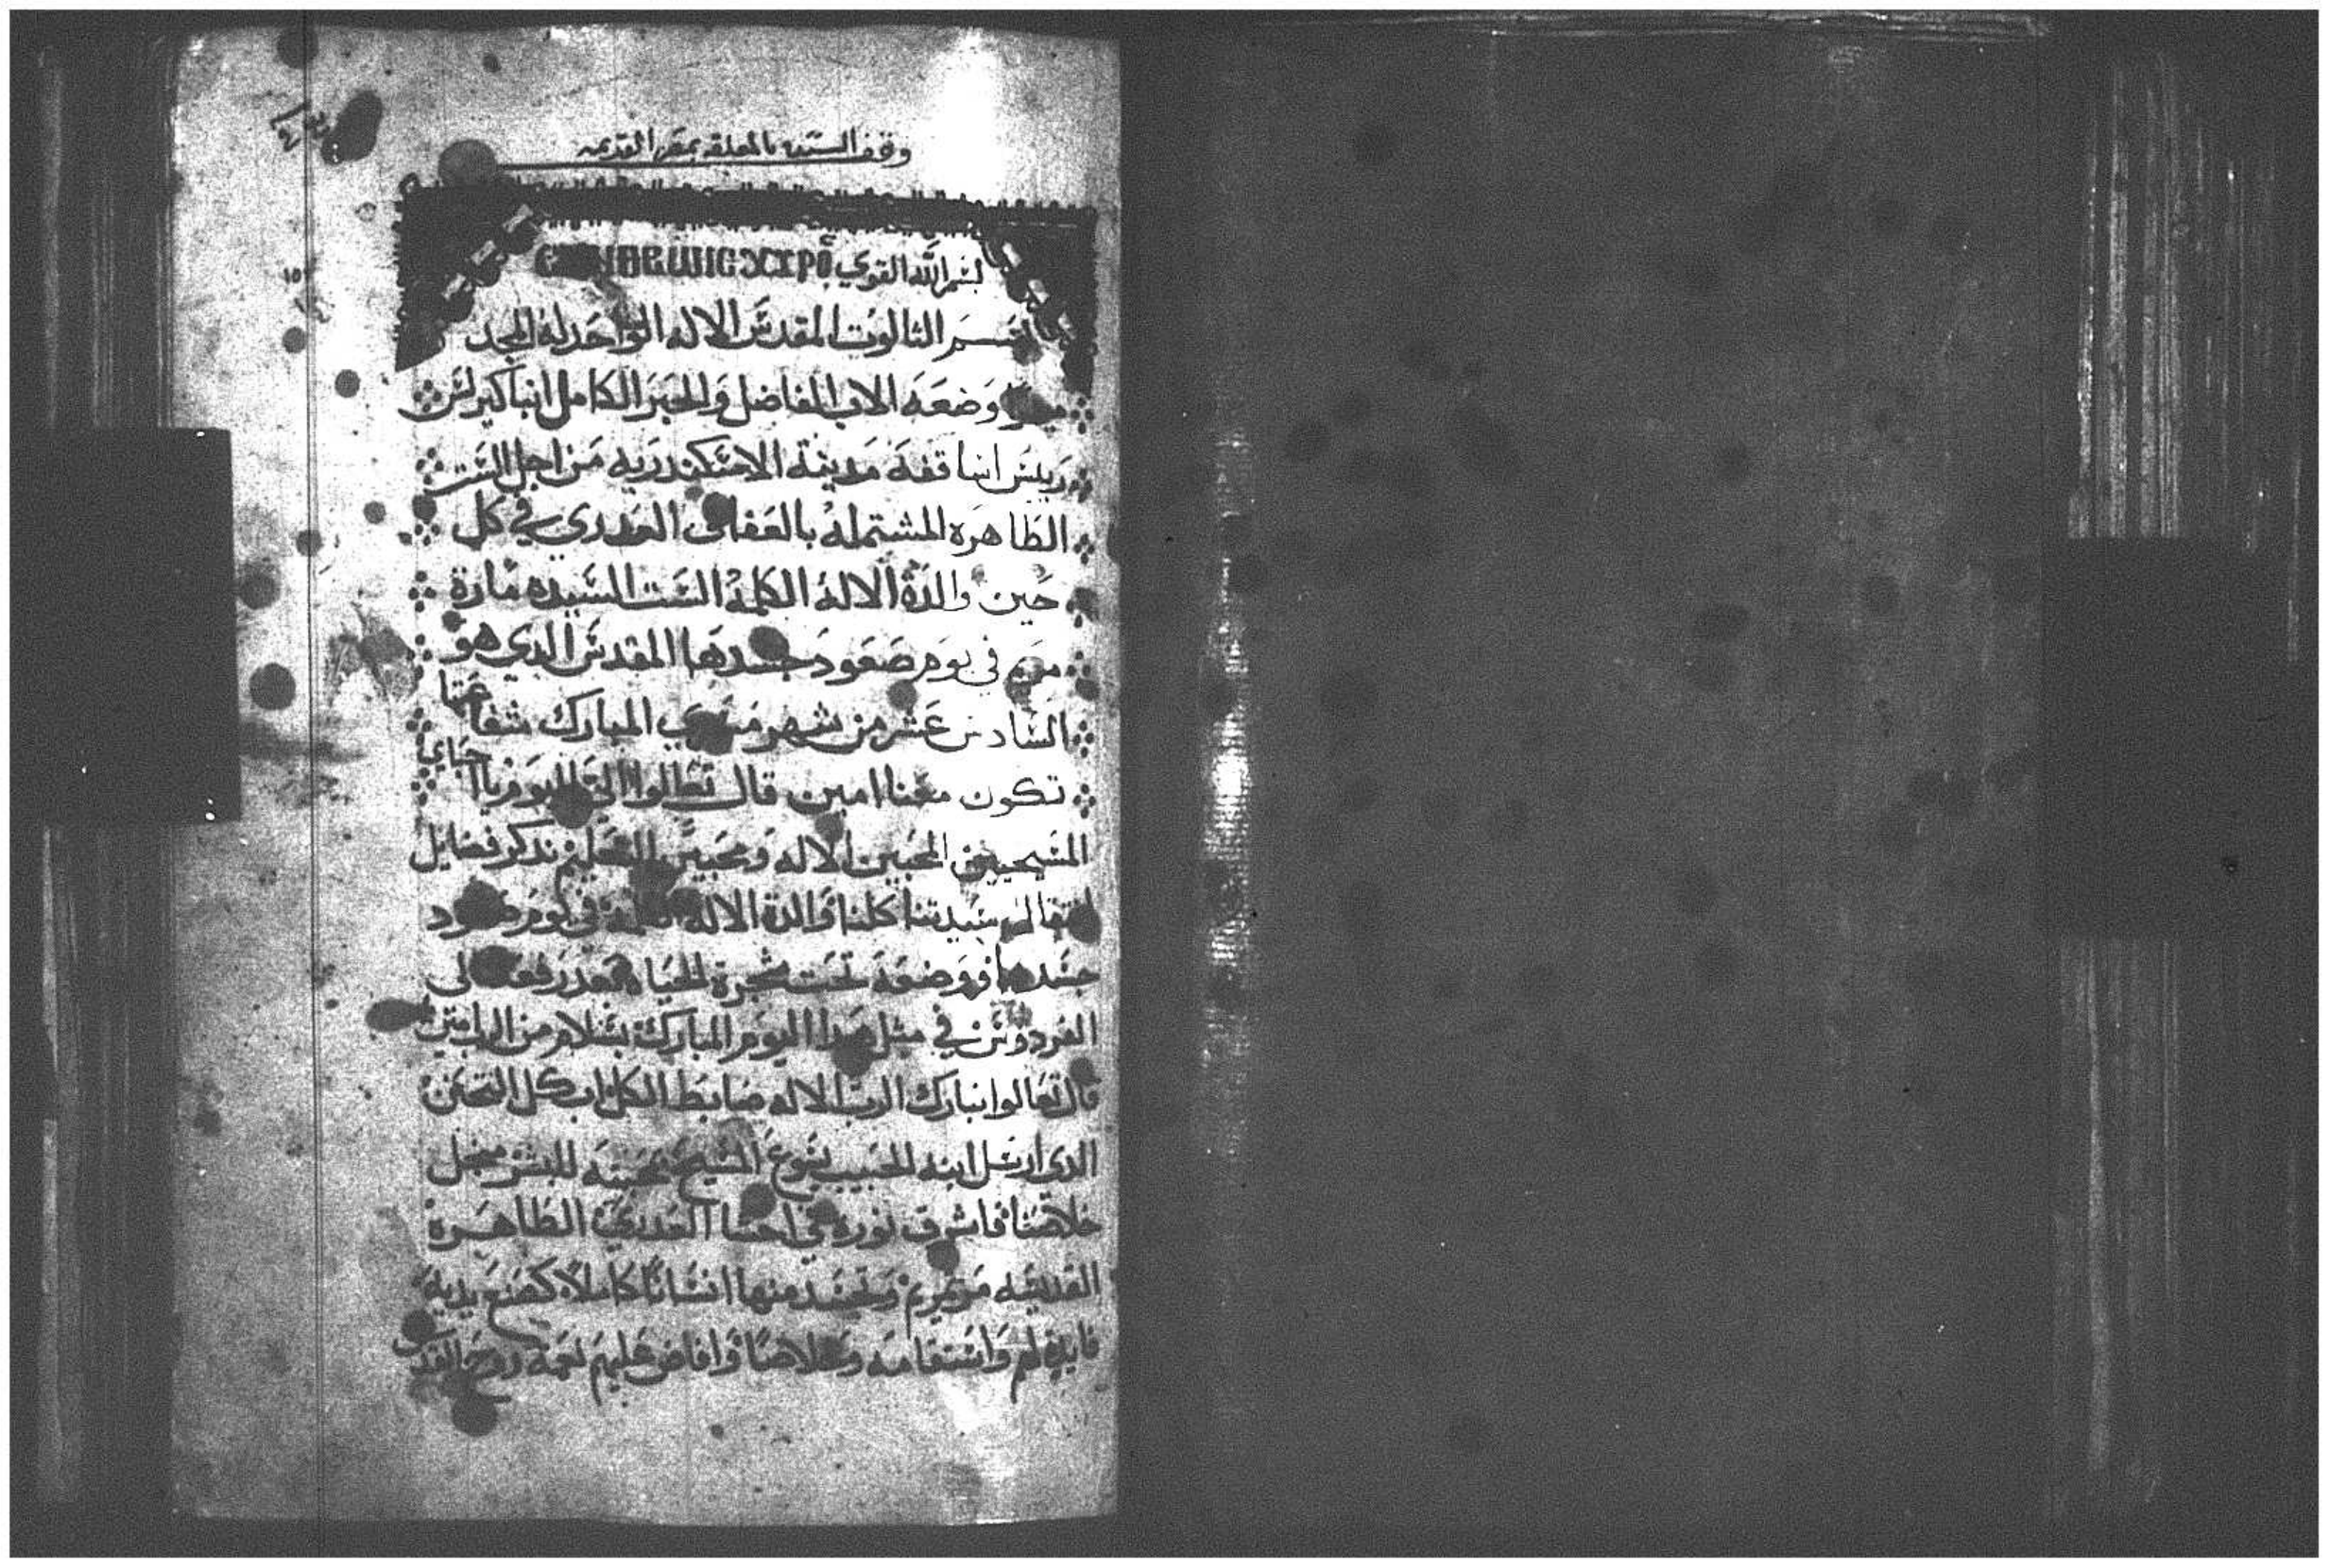 وقف الست بالمعلقه بمصر القديمه
بسم الله القوي
بسم الثالوت المقدس الاله الواحد له المجد
وضعه الاب الفاضل والحبر الكامل انبا كيرلس
رييس اساقفه مدينة الاسكندريه من اجل الست
الطاهره المشتمله بالعفاف العدري في كل
حين والدة الاله الكلمة الست السيده مارة
مريم في يوم صعود جسدها المقدس الدي هو
السادس عشر من شهر مسري المبارك شفاعتها
تكون معنا امين قال تعالوا الي اليوم يا احباي
المسيحيين المحبين الاله ومحبين التعليم ندكر فضايل
انتقال سيدتنا كلنا والدة الاله في يوم صعود
جسدها ووضعه تحت شجرة الحياه بعد رفعه الى
الفردوس في مثل هدا اليوم المبارك بسلام من الرب امين
قال تعالوا نبارك الرب الاله ضابط الكل اب كل التحنن
الدى ارسل ابنه الحبيب يسوع المسيح بمحبته للبشر مجل
خلاصنا فاشرق نوره في احشا العدري الطاهرة
القديسه مرتمريم وتجسد منها انسانا كاملا كصنع يديه
فايدة لهم واستقامه وخلاصا وافاض عليهم نعمة روح القدس